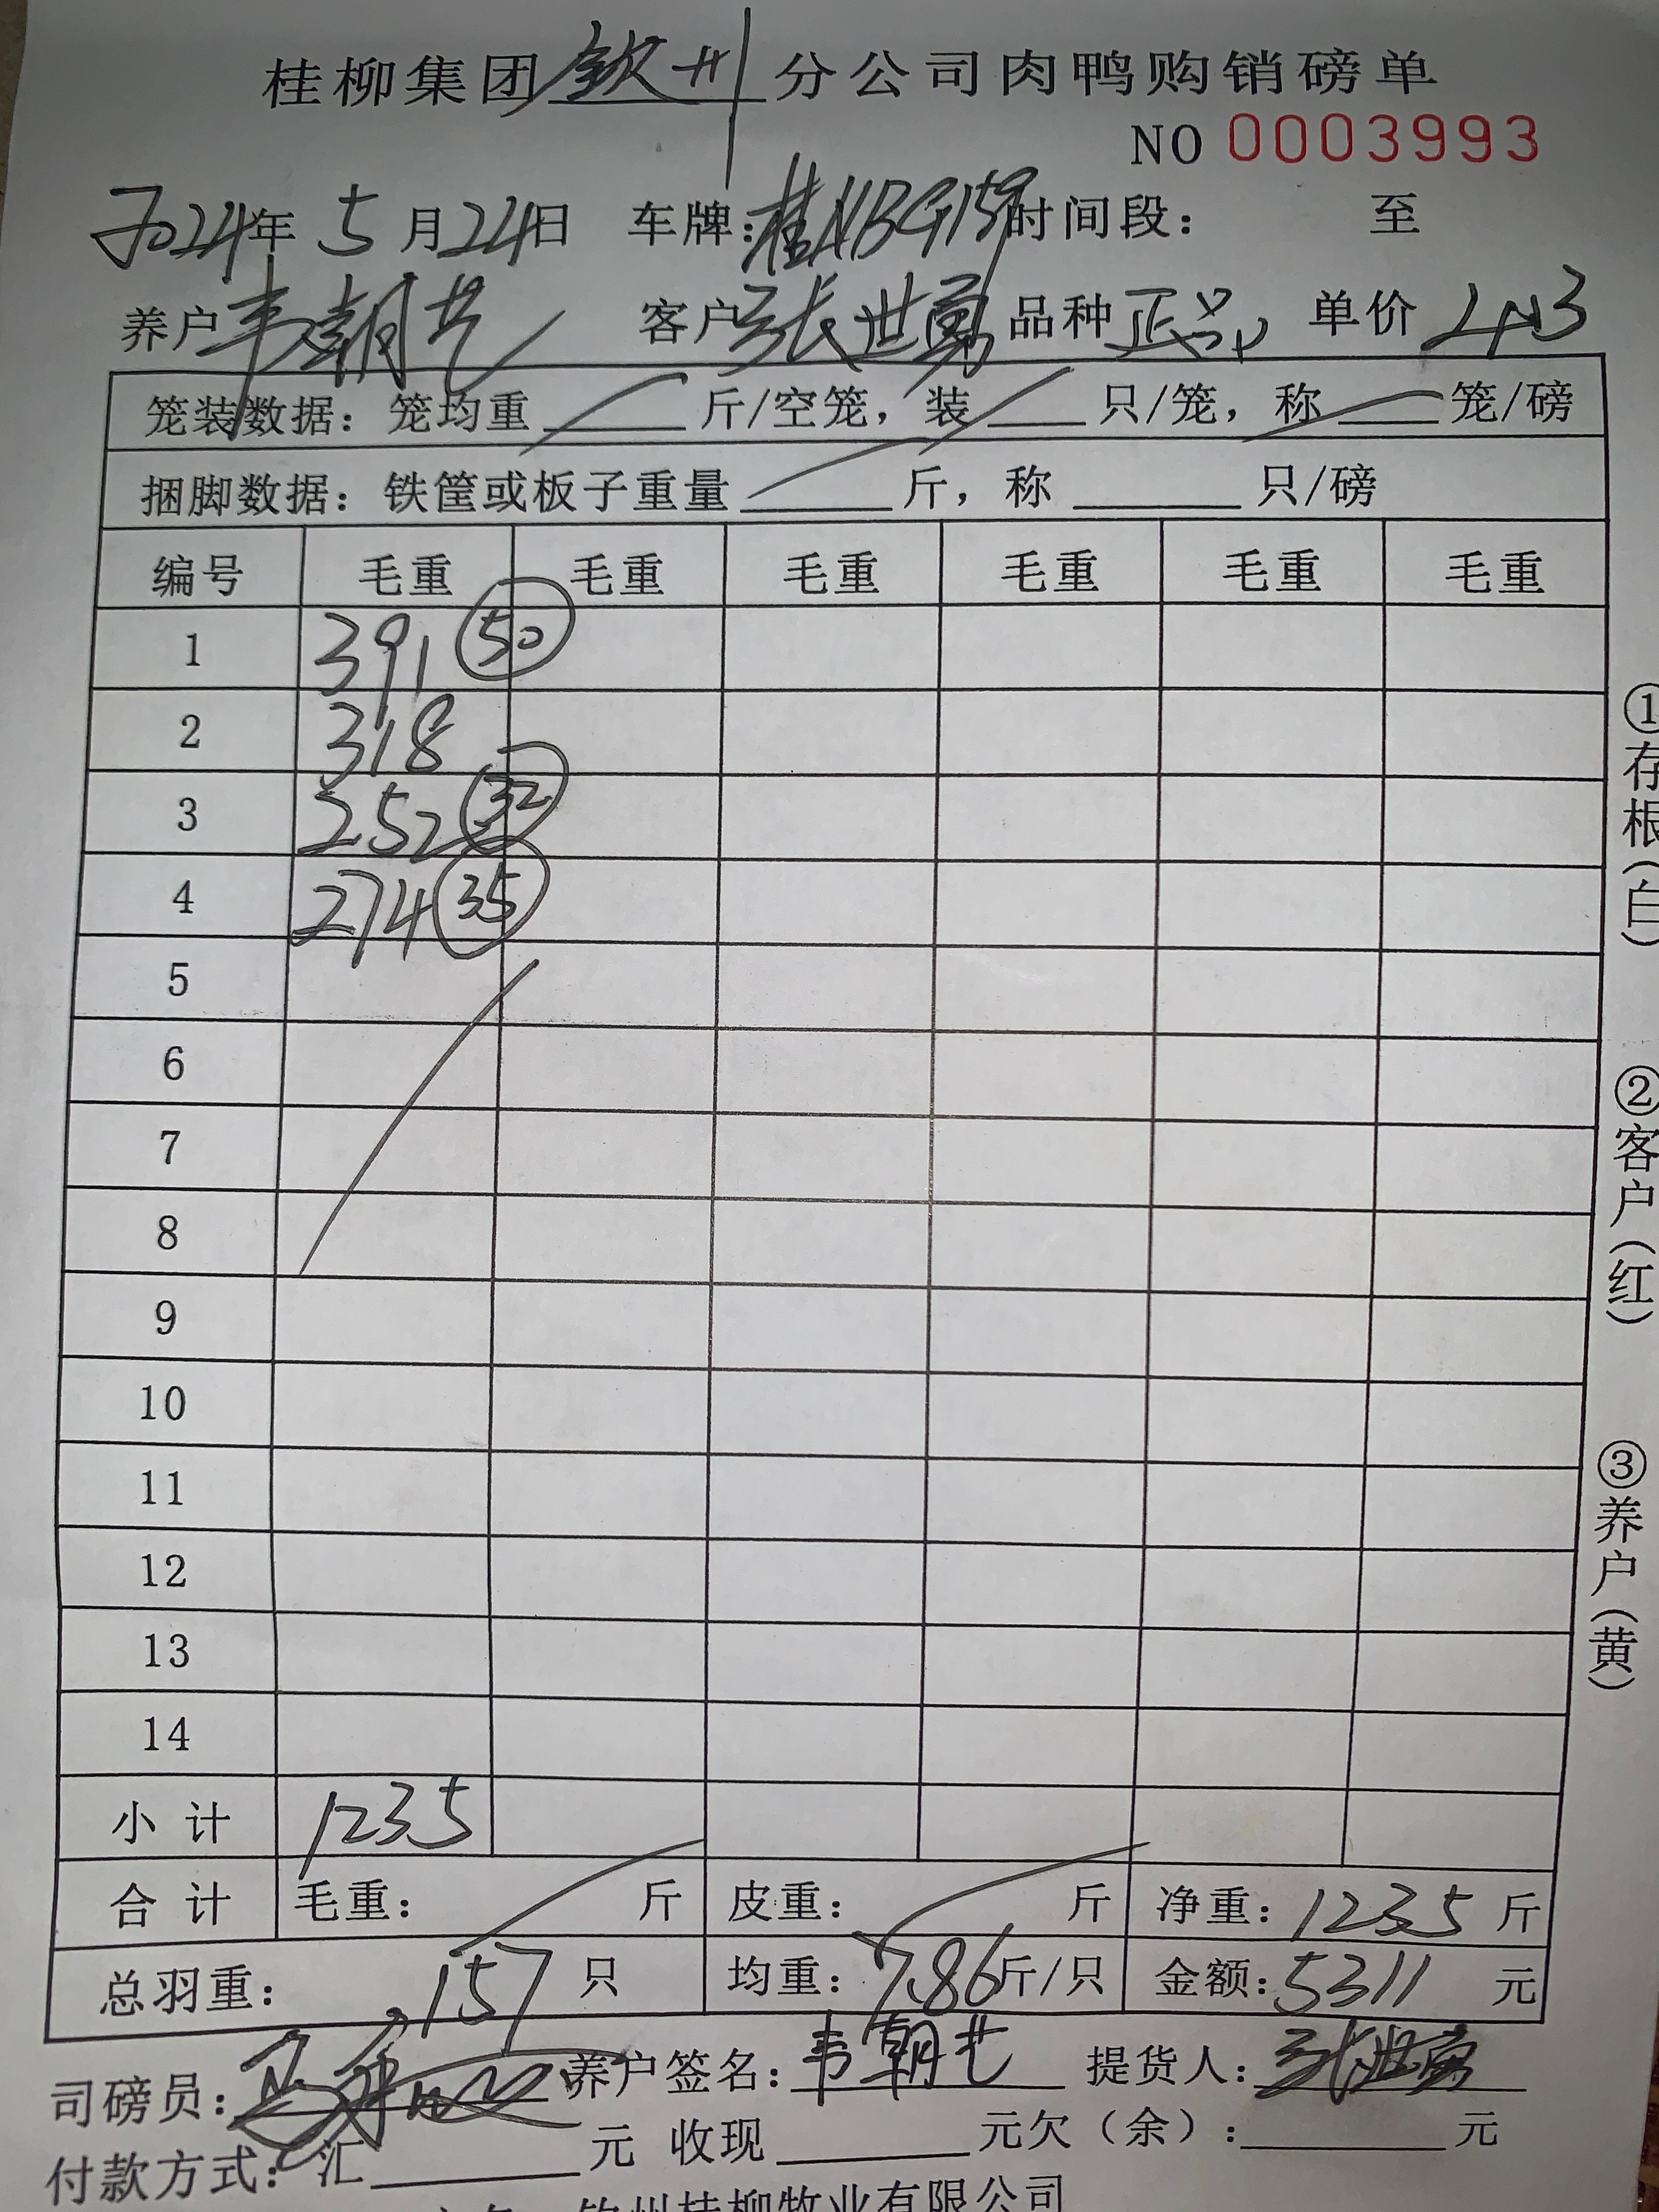 桂柳集团钦州分公司肉鸭购销磅单
NO 0003993
2024年5月24日 车牌:桂NBG159 时间段: 至
养户韦朝艺 客户张世勇 品种正品 单价4.3
笼装数据: 笼均重 斤/空笼, 装 只/笼, 称 笼/磅
捆脚数据: 铁筐或板子重量 斤, 称 只/磅
编号 毛重 毛重 毛重 毛重 毛重 毛重
1 391 50
2 318
3 252 32
4 274 35
5
6
7
8
9
10
11
12
13
14
小计 1235
合计 毛重: 斤 皮重: 斤 净重: 1235 斤
总羽重: 157 只 均重: 7.86斤/只 金额: 5311 元
司磅员: 养户签名: 韦朝艺 提货人: 张世勇
付款方式: 汇 元 收现 元欠(余): 元
钦州桂柳牧业有限公司
①存根(白)
②客户(红)
③养户(黄)